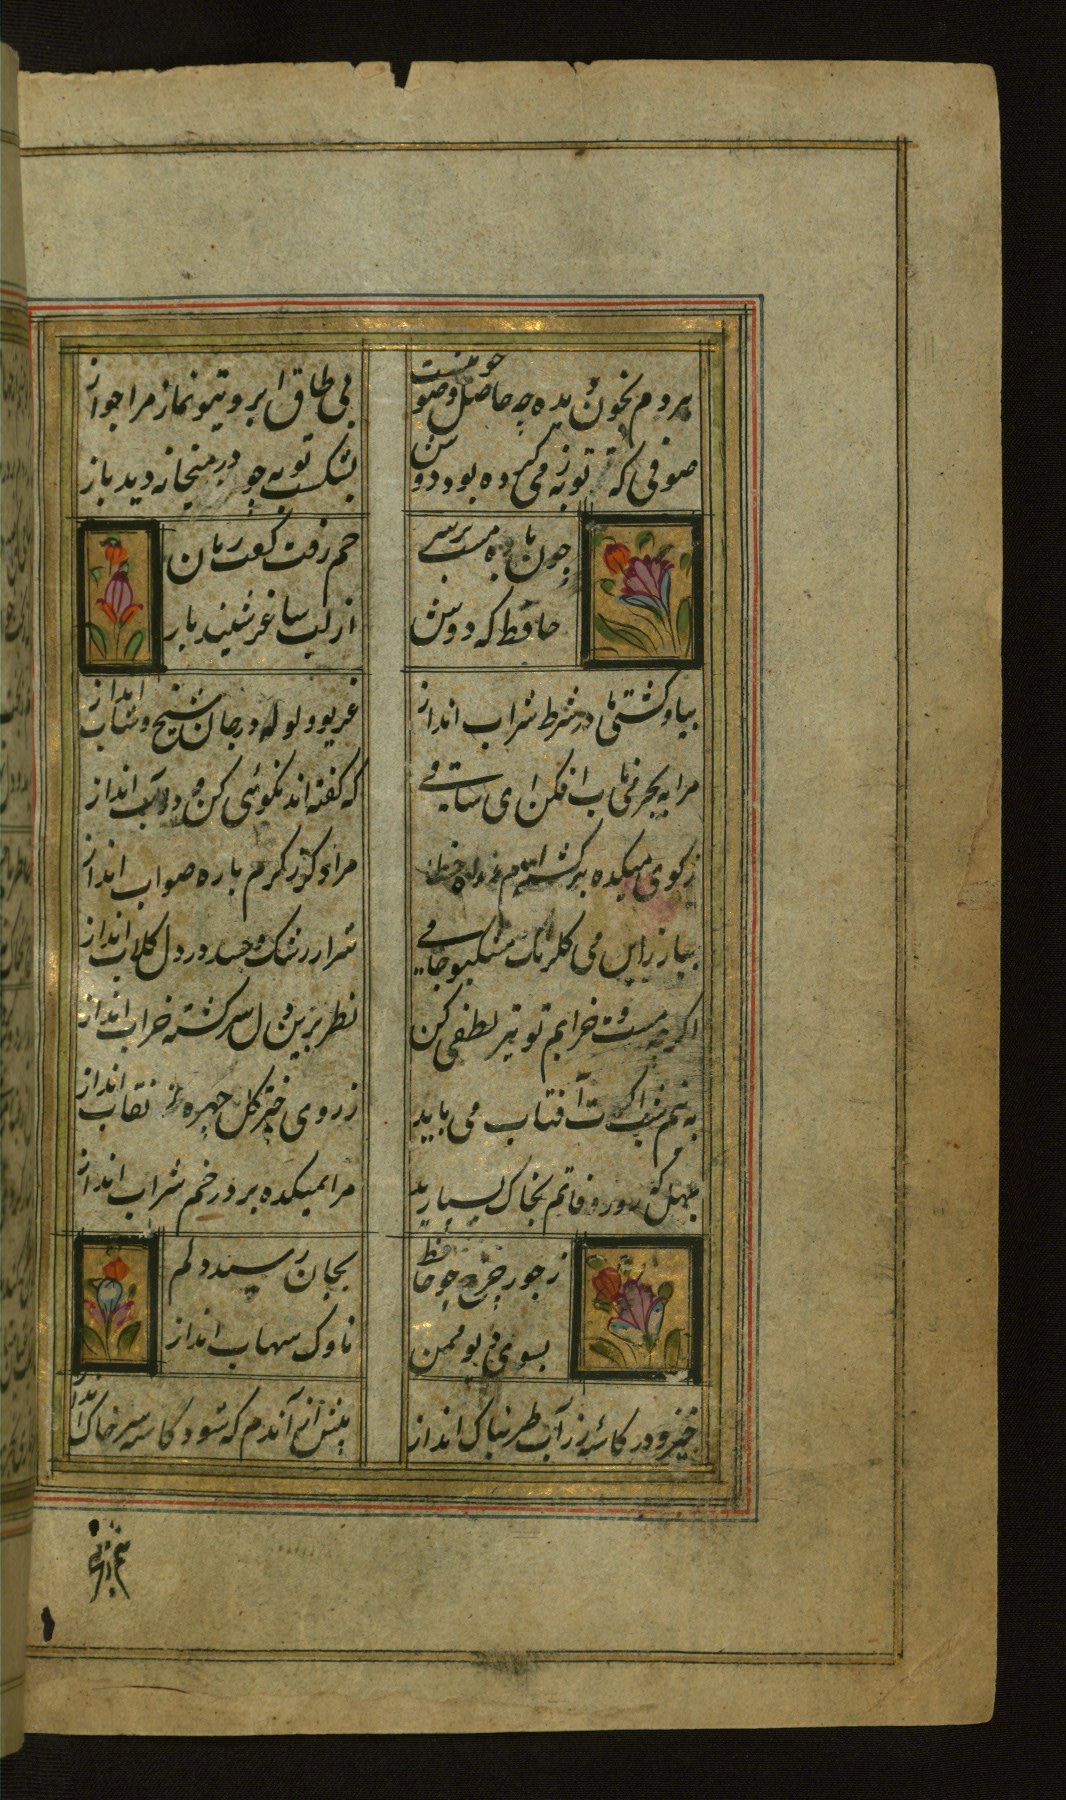 هر دم بخون دیده چه حاصل وضو چو نیست
بی طاق ابروی تو نماز مرا جواز
صوفی که توبه ز می کرده بود دوش
بشکست توبه چو در میخانه دید باز
چون باده مست بر سر
خم رفت کف زنان
حافظ که دوش
از لب ساغر شنید باز
بیا و کشتی ما در شط شراب انداز
غریو و ولوله در جان شیخ و شاب انداز
مرا به بحر فنا ب افکن ای ساقی
که گفته اند نکوئی کن و در آب انداز
ز کوی میکده برگشته ام ز راه خطا
مرا دگر ز کرم با ره صواب انداز
بیار زان می گلرنگ مشکبو جامی
شرار رشک و حسد در دل گلاب انداز
اگرچه مست و خرابم تو نیز لطفی کن
نظر برین دل سرگشته خراب انداز
به نیم شب اگرت آفتاب می باید
ز روی دختر گل چهره نقاب انداز
مهل که روز وفاتم بخاک بسپارند
مرا بمیکده بر در خم شراب انداز
ز جور چرخ چو حافظ
بجان رسید دلم
بسوی دیو محن
ناوک شهاب انداز
خیز و در کاسه زر آب طربناک انداز
پیش از آندم که شود کاسه سر خاک انداز